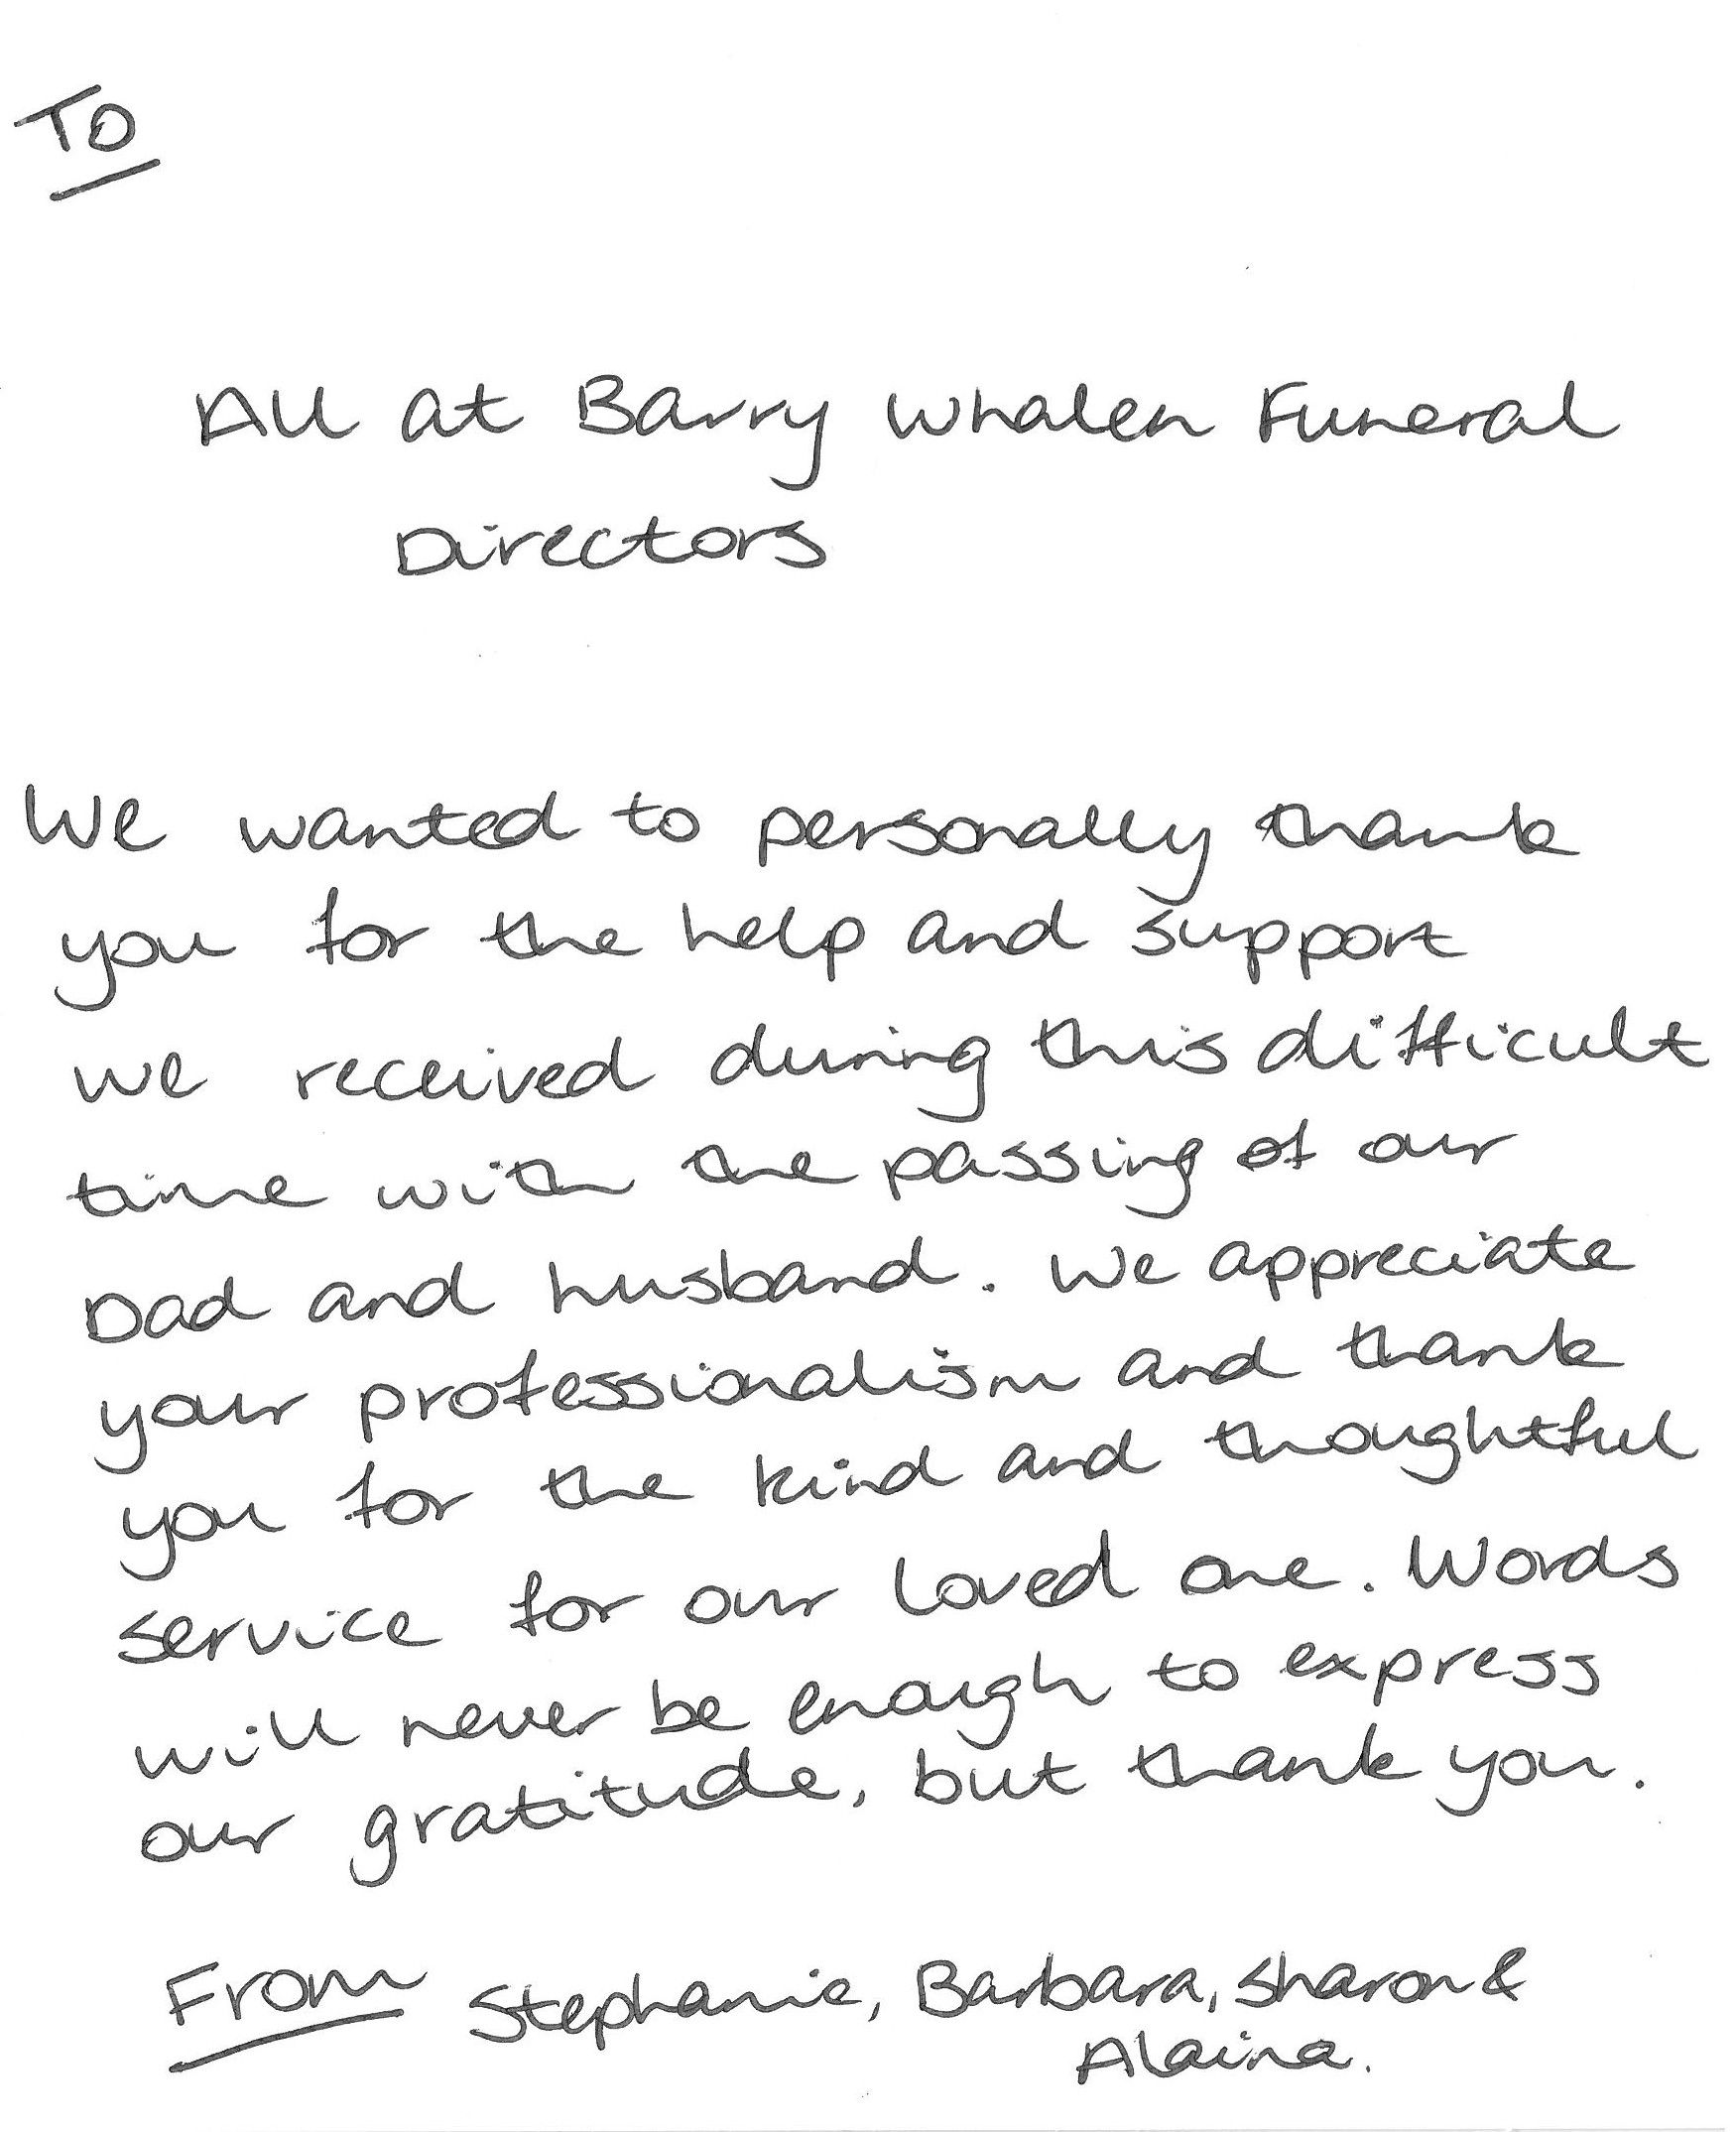 To
All at Barry Whalen Funeral
Directors
We wanted to personally thank
you for the help and support
we received during this difficult
time with the passing of our
Dad and husband. We appreciate
your professionalism and thank
you for the kind and thoughtful
service for our loved one. Words
will never be enough to express
our gratitude, but thank you.
From Stephanie, Barbara, Sharon &
Alaina.